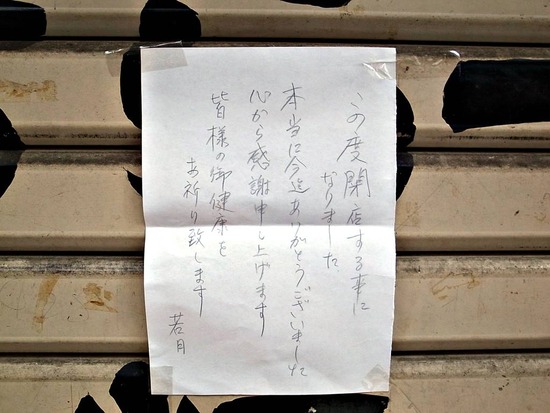 この度閉店する事に
なりました
本当に今迄ありがとうございました
心から感謝申し上げます
皆様の御健康を
お祈り致します
若月